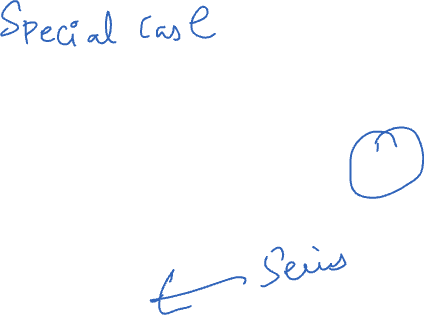 Special case
Series